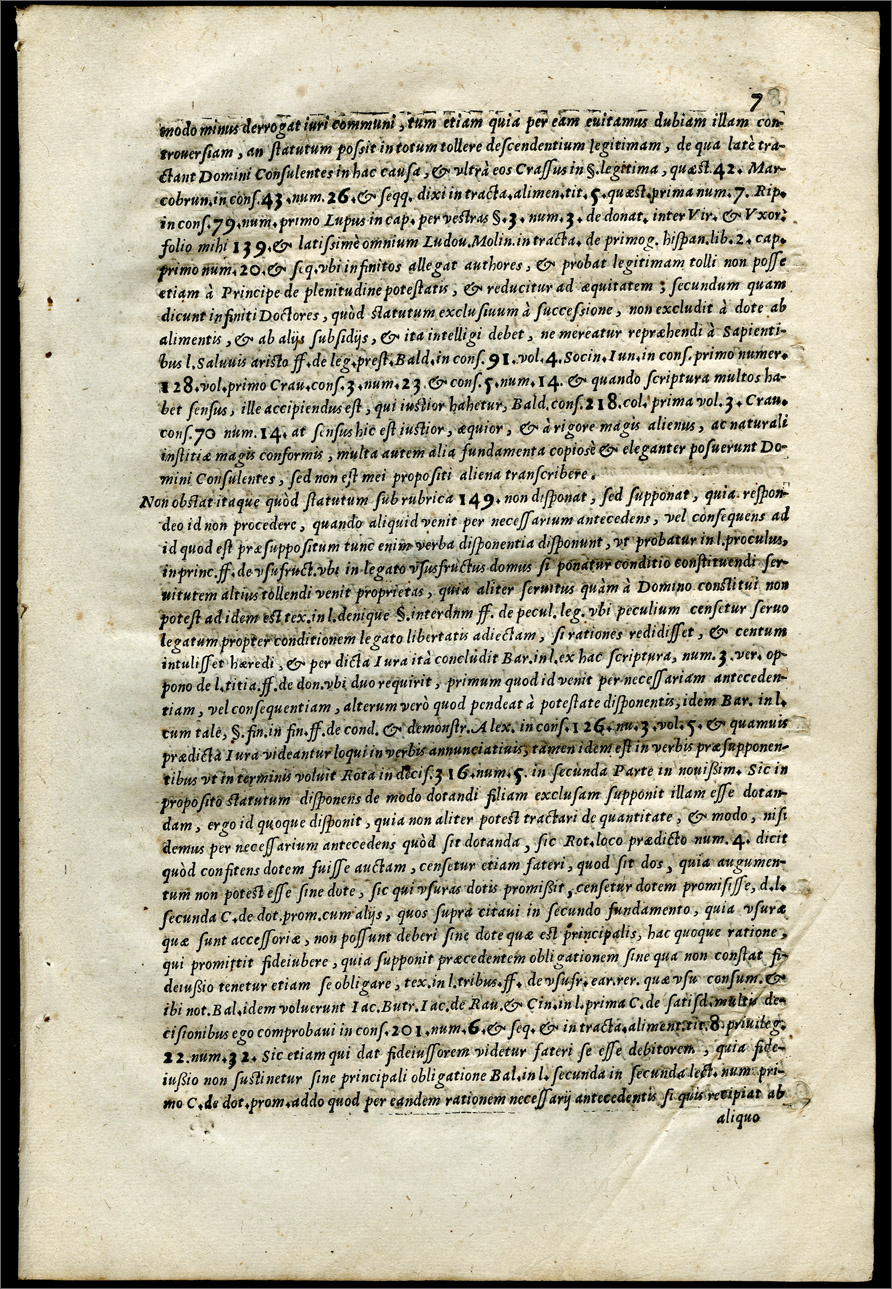 7
modo minus derrogat iuri communi, tum etiam quia per eam euitamus dubiam illam con-
trouersiam, an statutum possit in totum tollere descendentium legitimam, de qua latè tra-
ctant Domini Consulentes in hac causa, & vltrà eos Crassus in §. legitima, quæst. 42. Mar-
cobrun. in cons. 43. num. 26. & seqq. dixi in tracta. alimen. tit. 5. quæst. prima num. 7. Rip.
in cons. 79. num. primo Lupus in cap. per vestras §. 3. num. 3. de donat. inter Vir. & Vxor.
folio mihi 139. & latissimè omnium Ludou. Molin. in tracta. de primog. hispan. lib. 2. cap.
primo num. 20. & seq. vbi infinitos allegat authores, & probat legitimam tolli non posse
etiam à Principe de plenitudine potestatis, & reducitur ad æquitatem; secundum quam
dicunt infiniti Doctores, quòd statutum exclusiuum à successione, non excludit à dote ab
alimentis, & ab alijs subsidijs, & ita intelligi debet, ne mereatur repræhendi à Sapienti-
bus l. Saluuis aristo ff. de leg. prest. Bald. in cons. 91. vol. 4. Socin. Iun. in cons. primo numer.
128. vol. primo Crau. cons. 3. num. 23. & cons. 5. num. 14. & quando scriptura multos ha-
bet sensus, ille accipiendus est, qui iustior hahetur, Bald. cons. 218. col. prima vol. 3. Crau.
cons. 70 num. 14. at sensus hic est iustior, æquior, & à rigore magis alienus, ac naturali
institiæ magis conformis, multa autem alia fundamenta copiosè & eleganter posuerunt Do-
mini Consulentes, sed non est mei propositi aliena transcribere.
Non obstat itaque quòd statutum sub rubrica 149. non disponat, sed supponat, quia respon-
deo id non procedere, quando aliquid venit per necessarium antecedens, vel consequens ad
id quod est præsuppositum tunc enim verba disponentia disponunt, vt probatur in l. proculus,
in princ. ff. de vsufruct. vbi in legato vsusfructus domus si ponatur conditio constituendi ser-
uitutem altius tollendi venit proprietas, quia aliter seruitus quàm à Domino constitui non
potest ad idem est tex. in l. denique §. interdum ff. de pecul. leg. vbi peculium censetur seruo
legatum propter conditionem legato libertatis adiectam, si rationes redidisset, & centum
intulisset hæredi, & per dicta Iura ità concludit Bar. in l. ex hac scriptura, num. 3. ver. op-
pono de l. titia. ff. de don. vbi duo requirit, primum quod id venit per necessariam anteceden-
tiam, vel consequentiam, alterum verò quod pendeat à potestate disponentis, idem Bar. in l.
cum tale, §. fin. in fin. ff. de cond. & demonstr. Alex. in cons. 126. nu. 3. vol. 5. & quamuis
prædicta Iura videantur loqui in verbis annunciatiuis, tamen idem est in verbis præsupponen-
tibus vt in terminis voluit Rota in decis. 316. num. 5. in secunda Parte in nouissim. Sic in
proposito statutum disponens de modo dotandi filiam exclusam supponit illam esse dotan-
dam, ergo id quoque disponit, quia non aliter potest tractari de quantitate, & modo, nisi
demus per necessarium antecedens quòd sit dotanda, sic Rot. loco prædicto num. 4. dicit
quòd confitens dotem fuisse auctam, censetur etiam fateri, quod sit dos, quia augumen-
tum non potest esse sine dote, sic qui vsuras dotis promissit, censetur dotem promisisse, d. l.
secunda C. de dot. prom. cum alijs, quos suprà citaui in secundo fundamento, quia vsuræ
quæ sunt accessoriæ, non possunt deberi sine dote quæ est principalis, hac quoque ratione,
qui promittit fideiubere, quia supponit præcedentem obligationem sine qua non constat fi-
deiussio tenetur etiam se obligare, tex. in l. tribus. ff. de vsufr. ear. rer. quæ vsu consum. &
ibi not. Bal. idem voluerunt Iac. Butr. Iac. de Rau. & Cin. in l. prima C. de satisd. multis de-
cisionibus ego comprobaui in cons. 201. num. 6. & seq. & in tracta. aliment. tit. 8. priuileg.
22. num. 32. Sic etiam qui dat fideiussorem videtur fateri se esse debitorem, quia fide-
iussio non sustinetur sine principali obligatione Bal. in l. secunda in secunda lect. num. pri-
mo C. de dot. prom. addo quod per eandem rationem necessarij antecedentis si quis recipiat ab
aliquo